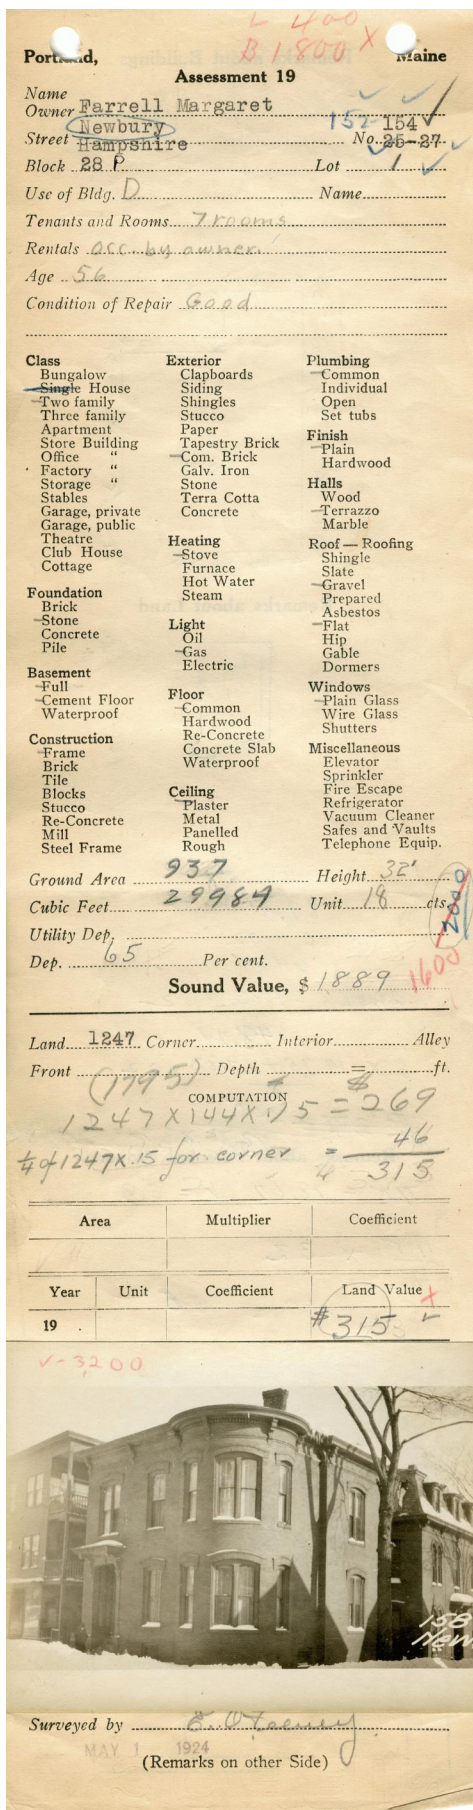 L 400
B 1800 X
Portland, Maine
Assessment 19
Name
Owner Farrell Margaret
152- 154
Newbury
Street Hampshire No. 25-27
Block 28 P Lot 1
Use of Bldg. D Name
Tenants and Rooms 7 rooms
Rentals Occ. by owner.
Age 56
Condition of Repair Good
Class
Bungalow
Single House
Two family
Three family
Apartment
Store Building
Office "
Factory "
Storage "
Stables
Garage, private
Garage, public
Theatre
Club House
Cottage
Foundation
Brick
Stone
Concrete
Pile
Basement
Full
Cement Floor
Waterproof
Construction
Frame
Brick
Tile
Blocks
Stucco
Re-Concrete
Mill
Steel Frame
Exterior
Clapboards
Siding
Shingles
Stucco
Paper
Tapestry Brick
Com. Brick
Galv. Iron
Stone
Terra Cotta
Concrete
Heating
Stove
Furnace
Hot Water
Steam
Light
Oil
Gas
Electric
Floor
Common
Hardwood
Re-Concrete
Concrete Slab
Waterproof
Ceiling
Plaster
Metal
Panelled
Rough
Plumbing
Common
Individual
Open
Set tubs
Finish
Plain
Hardwood
Halls
Wood
Terrazzo
Marble
Roof — Roofing
Shingle
Slate
Gravel
Prepared
Asbestos
Flat
Hip
Gable
Dormers
Windows
Plain Glass
Wire Glass
Shutters
Miscellaneous
Elevator
Sprinkler
Fire Escape
Refrigerator
Vacuum Cleaner
Safes and Vaults
Telephone Equip.
Ground Area 937 Height 32'
Cubic Feet 29984 Unit 18 cts.
2000
Utility Dep.
Dep. 65 Per cent.
1600
Sound Value, $ 1889
Land 1247 Corner Interior Alley
Front Depth = ft.
(1795)
COMPUTATION
1247 X 144 X .15 = 269
1/4 of 1247 X .15 for corner = 46
315
Area Multiplier Coefficient
Year Unit Coefficient Land Value X
19 #315
V-3,200
156
New
Surveyed by
MAY 1 1924
(Remarks on other Side)